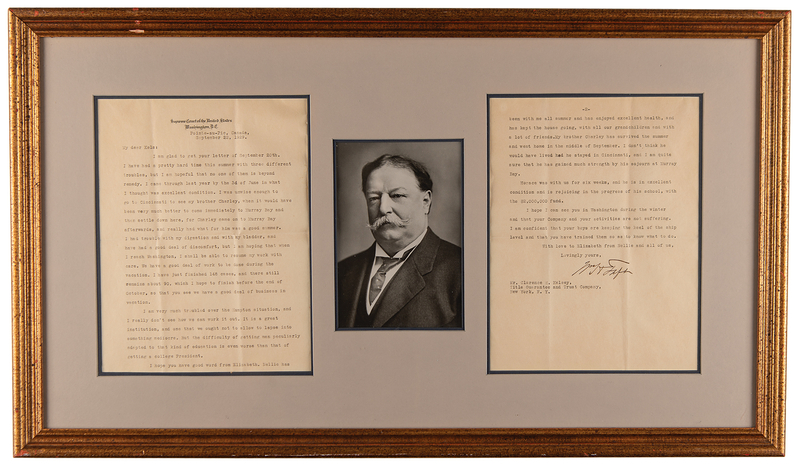 Supreme Court of the United States
Washington, D.C.
Pointe-au-Pic, Canada,
September 22, 1929.
My dear
I was glad to get your letter of September 20th.
I have had a pretty hard time this summer with three different
troubles, but I am hopeful that no one of them is beyond
remedy. I came through last year by the 3d of June in what
I thought was excellent condition. I was unwise enough to
go to Cincinnati to see my brother Charley, when it would have
been very much better to come immediately to Murray Bay and
then settle down here, for Charley came on to Murray Bay
afterwards, and really has what for him was a good summer.
I had trouble with my digestion and with my bladder, and
have had a good deal of discomfort, but I am hoping that when
I reach Washington, I shall be able to resume my work with
care. We have a good deal of work to be done during the
vacation. I have just finished 102 cases, and there still
remains about 50, which I have to finish before the end of
October, so that you see we have a good deal of business in
vacation.
I am very much troubled over the situation, and
I really don't see how we can work it out. It is a great
institution, and one that we ought not to allow to lapse into
something mediocre, but the difficulty of getting men peculiarly
adapted to that kind of education is even worse than that of
getting a college President.
I hope you have good word from Elizabeth. Nellie has
-2-
been with me all summer and has enjoyed excellent health, and
has kept the house going, with all our grandchildren and with
a lot of friends. My brother Charley has survived the summer
and went home in the middle of September. I don't think he
would have lived had he stayed in Cincinnati, and I am quite
sure that he has gained much strength by his sojourn at Murray
Bay.
Horace was with us for six weeks, and he is in excellent
condition and is rejoicing in the progress of his school, with
the $2,000,000 fund.
I hope I can see you in Washington during the winter
and that your Company and your activities are not suffering.
I am confident that your boys are keeping the keel of the ship
level and that you have trained them so as to know what to do.
With love to Elizabeth from Nellie and all of us,
Lovingly yours,
Wm H Taft
Mr. Clarence H. Kelsey,
Title Guarantee and Trust Company,
New York, N. Y.